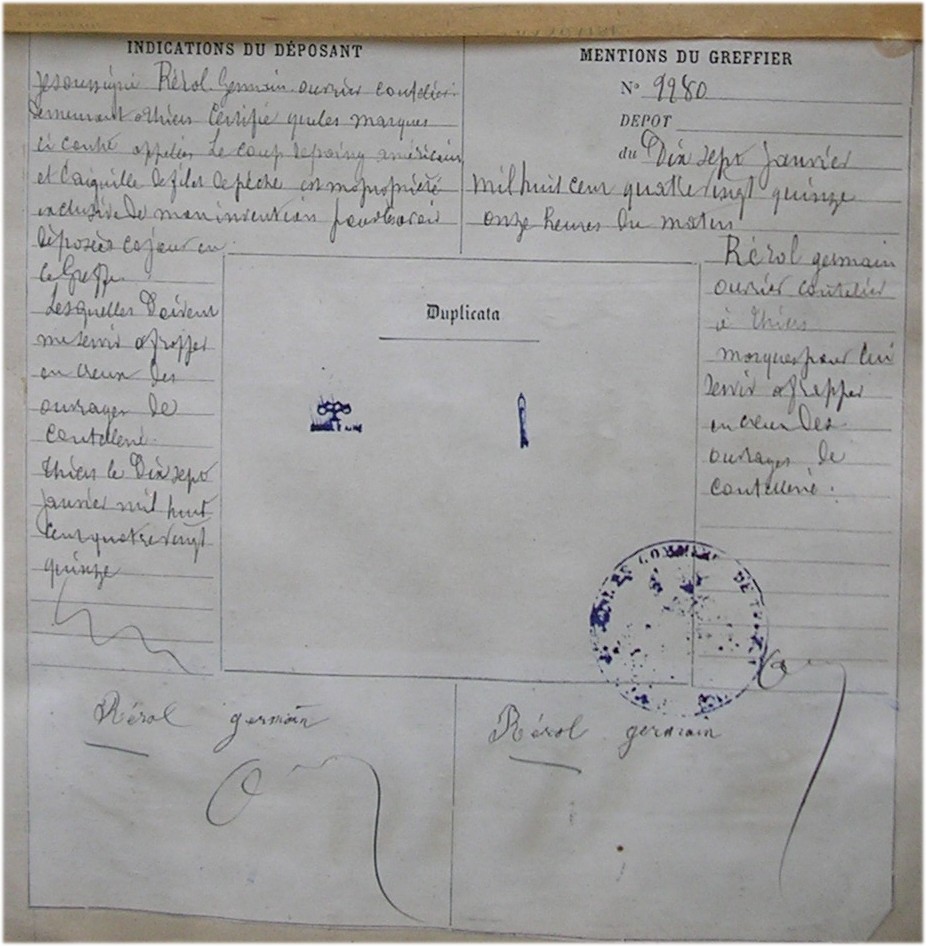 INDICATIONS DU DÉPOSANT
Je soussigné Rérol Germain ouvrier coutelier
demeurant à Thiers Certifie que les marques
ci contre appellées Le coup de poing américain
et L'aiguille de filet de pêche est ma propriété
exclusive de mon invention pour l'avoir
déposées ce jour en
ce Greffe
Lesquelles Doivent
me servir à frapper
en creux des
ouvrages de
Coutellerie.
Thiers le Dix sept
Janvier mil huit
cent quatre vingt
quinze
MENTIONS DU GREFFIER
No 9980
DEPOT
du Dix sept Janvier
Mil huit cent quatre vingt quinze
onze heures du matin
Rérol germain
ouvrier coutelier
à Thiers
marques pour lui
servir à frapper
en creux des
ouvrages de
coutellerie.
Duplicata
Rérol germain
Rérol germain